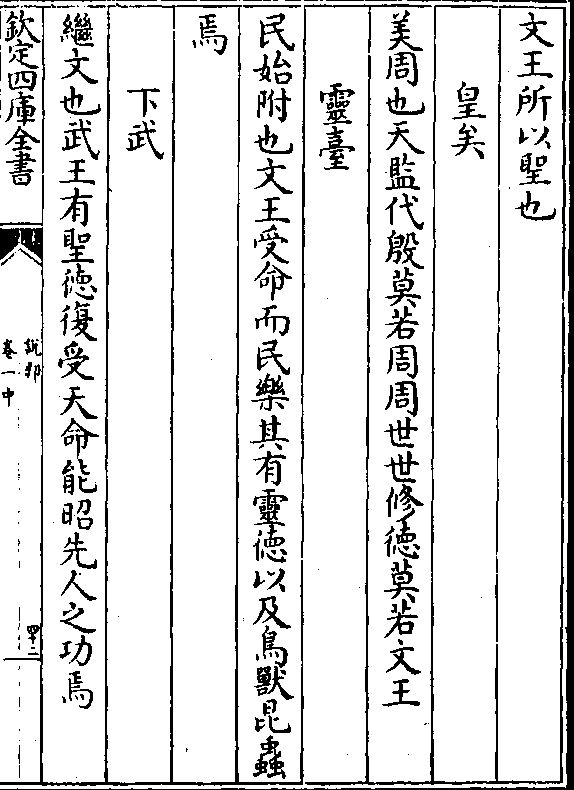 文王所以聖也
皇矣
美周也天監代殷莫若周周世世修徳莫若文王
靈臺
民始附也文王受命而民樂其有靈徳以及鳥獸昆蟲
焉
下武
繼文也武王有聖徳復受天命能昭先人之功焉
欽定四庫全書
說郛
卷一中
四十二